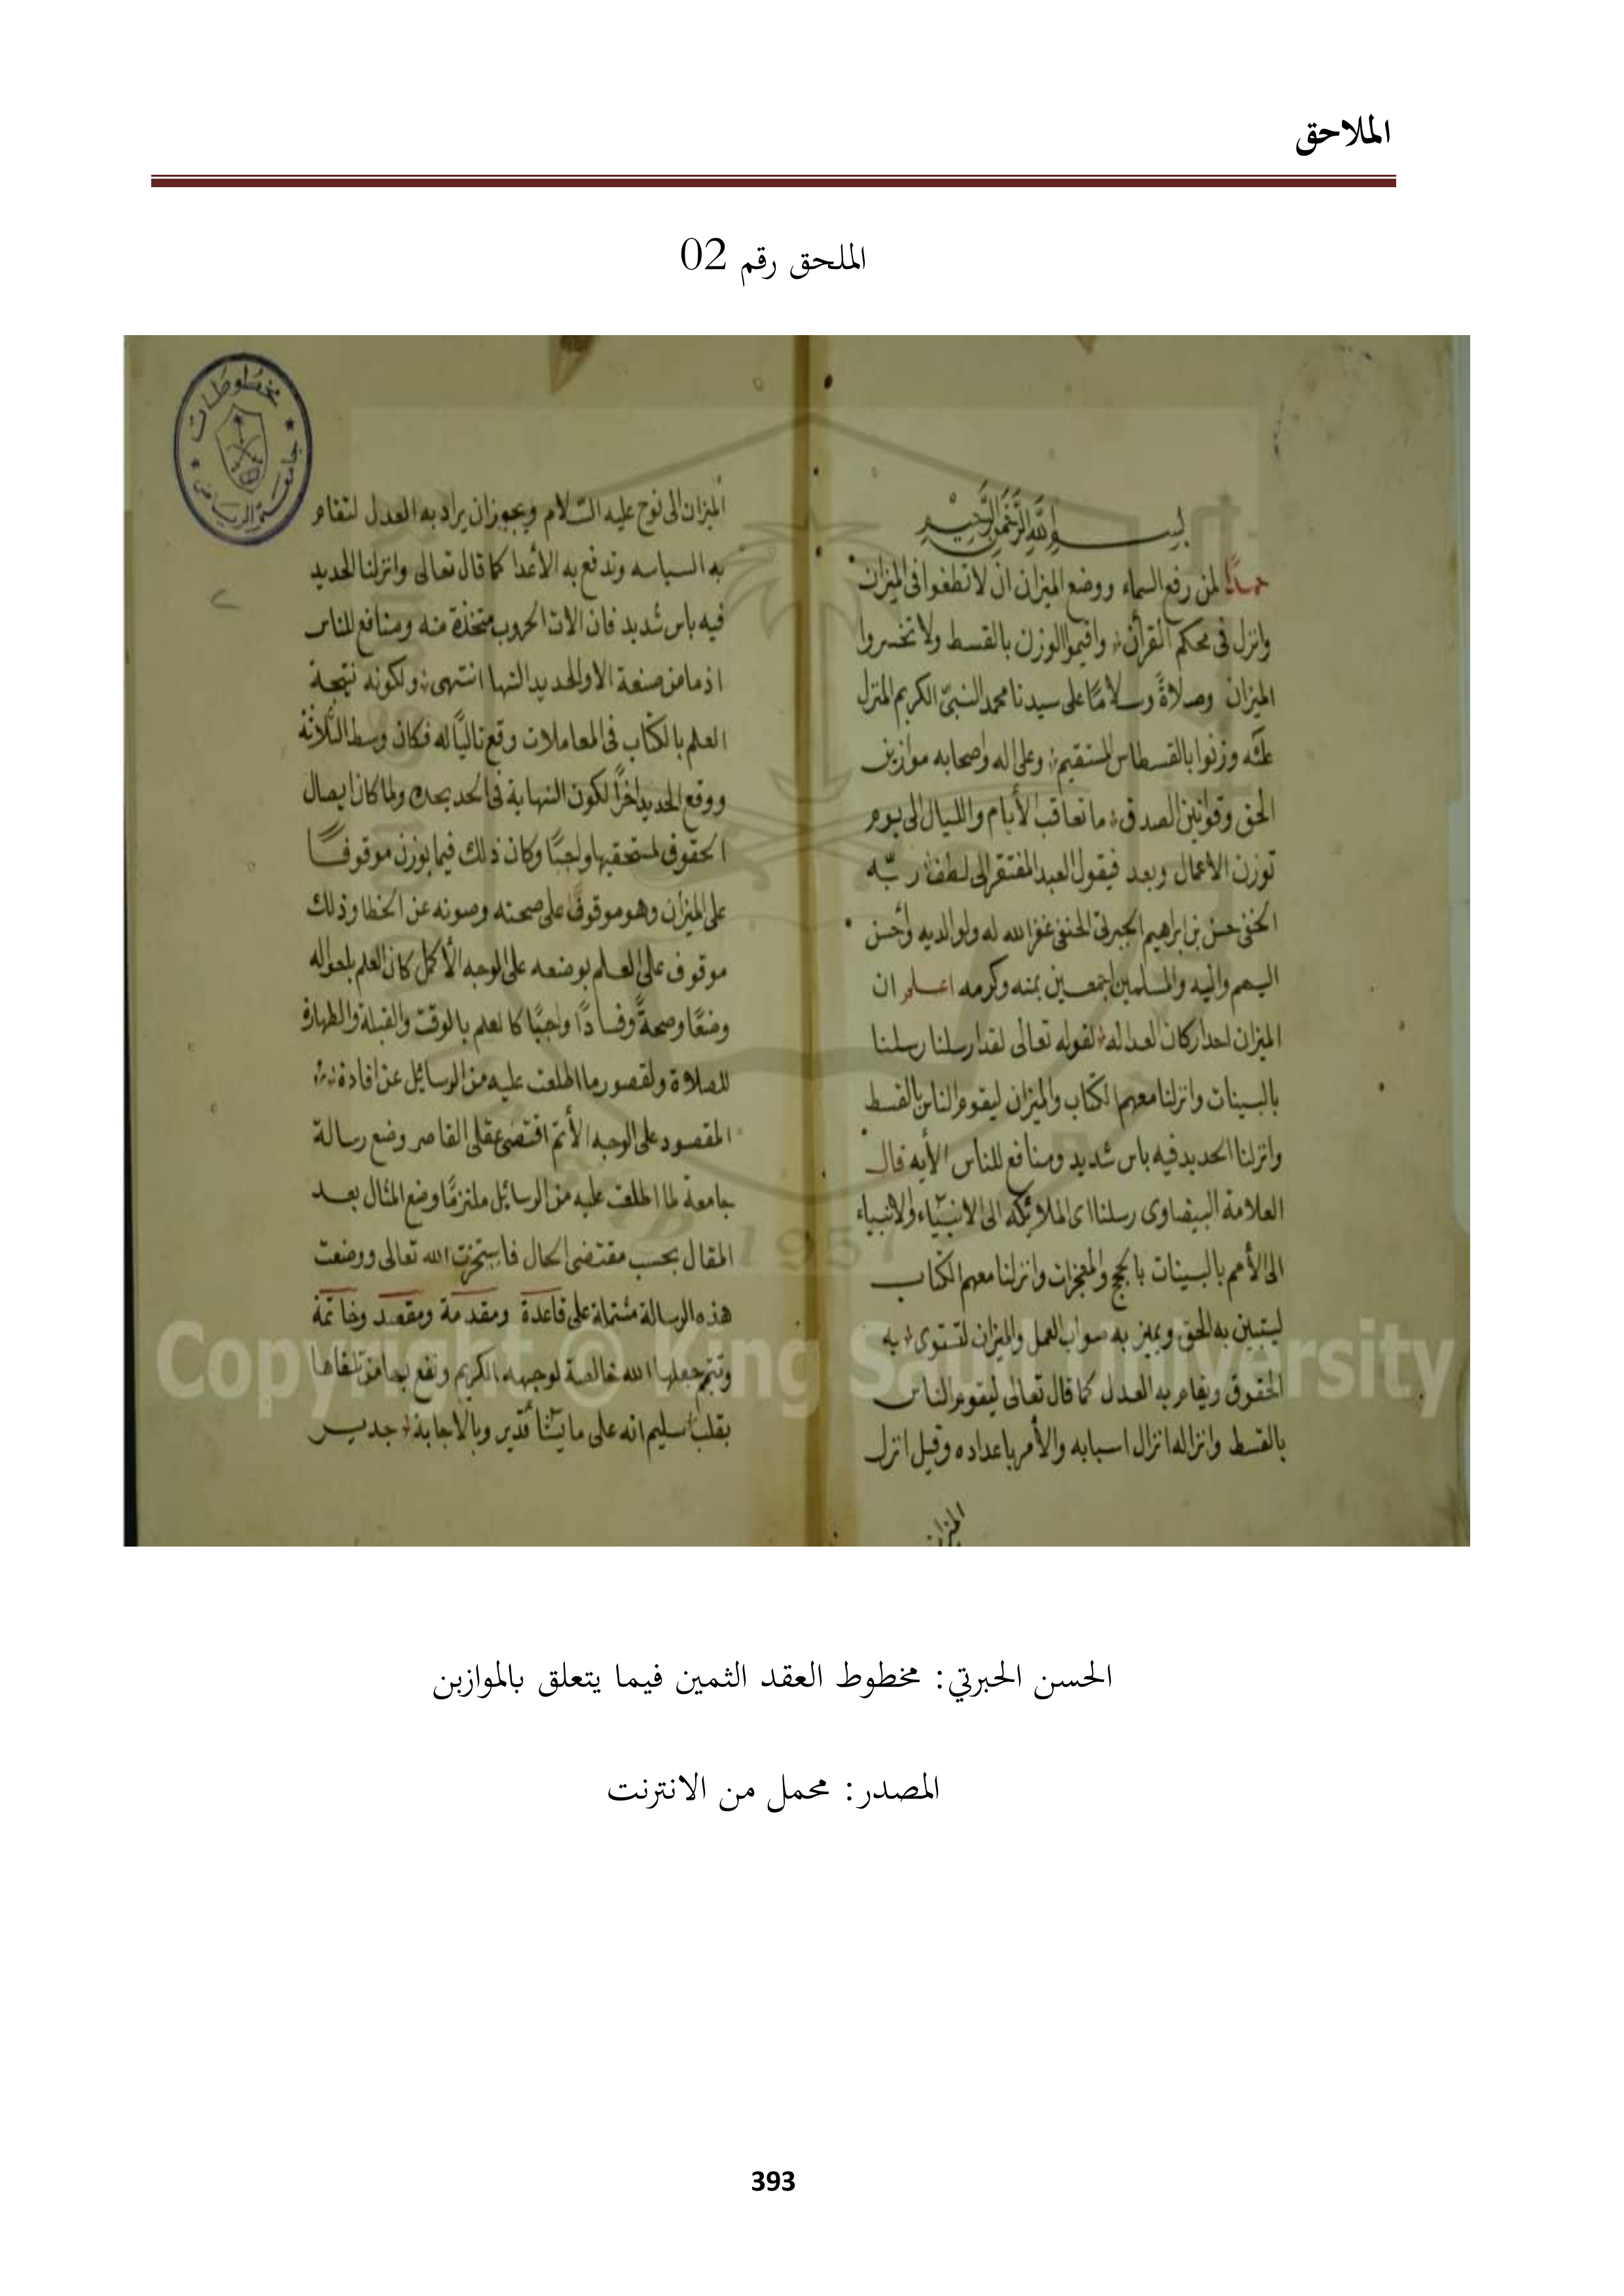 الملاحق
الملحق رقم 02
بسم الله الرحمن الرحيم
حمدًا لمن رفع السماء ووضع الميزان ان لا تطغوا فى الميزان
وانزل فى محكم القرأن واقيموا الوزن بالقسط ولا تخسروا
الميزان وصلاةً وسلامًا على سيدنا محمد النبىّ الكريم المنزل
عليه وزنوا بالقسطاس المستقيم وعلى اله واصحابه موازين
الحق وقوانين الصدق ما تعاقب الأيام والليال الى يوم
توزن الاعمال وبعد فيقول العبد المفتقر الى لطف ربّه
الخفى حسن بن ابرهيم الجبرتى الحنفى غفر الله له ولوالديه وأحسن
اليهم واليه والمسلمين اجمعين بمنه وكرمه اعلم ان
الميزان احد اركان العداله لقوله تعالى لقد ارسلنا رسلنا
بالبينات وانزلنا معهم الكتاب والميزان ليقوم الناس بالقسط
وانزلنا الحديد فيه باس شديد ومنافع للناس الأيه قال
العلامة البيضاوى رسلنا اى الملائكه الى الانبياء والانبياء
الى الأمم بالبينات بالحجج والمعجزات وانزلنا معهم الكتاب
ليتبين به الحق ويميز به صواب العمل والميزان لتستوى به
الحقوق ويقام به العدل كما قال تعالى ليقوم الناس
بالقسط وانزاله انزال اسبابه والأمر باعداده وقيل انزل
الميزان
مخطوطات
جامعة الرياض
٢
الميزان الى نوح عليه السّلام ويجوز ان يراد به العدل لتقام
به السياسه وتدفع به الأعدا كما قال تعالى وانزلنا الحديد
فيه باس شديد فان الات الحروب متخذة منه ومنافع للناس
اذ ما من صنعة الا والحديد التها انتهى ولكونه نتيجة
العلم بالكتاب فى المعاملات وقع تاليًا له فكان وسط الثلاثة
ووقع الحديد اخرًا لكون النهاية فى الحد بحده ولما كان ايصال
الحقوق لمستحقيها واجبًا وكان ذلك فيما يوزن موقوفًا
على الميزان وهو موقوف على صحته وصونه عن الخطا وذلك
موقوف على العلم بوضعه على الوجه الأكمل كان العلم باحواله
وضعًا وصحةً وفسادًا واجبًا كالعلم بالوقت والقبلة والطهارة
للصلاة ولقصور ما اطلعت عليه من الرسائل عن افادة
المقصود على الوجه الأتم اقتضى عقلى القاصر وضع رسالة
جامعة لما اطلعت عليه من الرسائل ملتزمًا وضع المثال بعد
المقال بحسب مقتضى الحال فاستخرت الله تعالى ووضعت
هذه الرسالة مشتملة على قاعدة ومقدمة ومقصد وخاتمة
وتتم جعلها الله خالصة لوجهه الكريم ونفع بها من تلقاها
بقلب سليم انه على ما يشأ قدير وبالاجابة جدير
Copyright © King Saud University
1957
الحسن الحبرتي: مخطوط العقد الثمين فيما يتعلق بالموازبن
المصدر: محمل من الانترنت
393